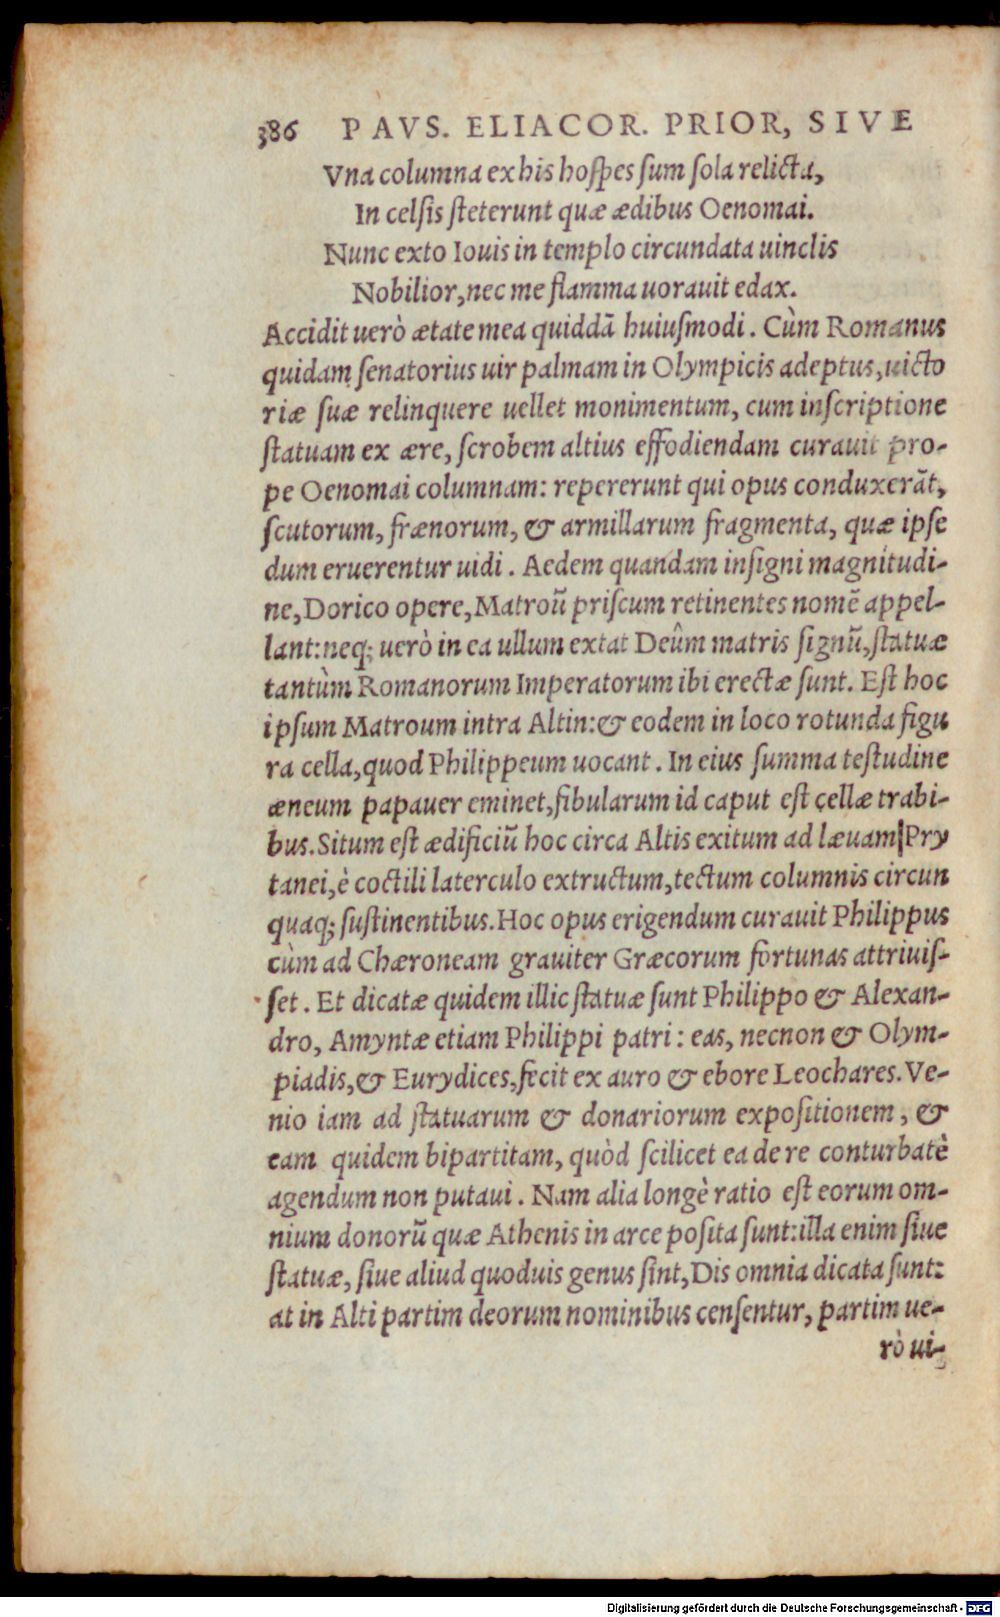 386 PAVS. ELIACOR. PRIOR, SIVE
Vna columna ex his hospes ſum ſola relicta,
In celſis ſteterunt quæ ædibus Oenomai.
Nunc exto Iouis in templo circundata uinclis
Nobilior, nec me flamma uorauit edax.
Accidit uerò ætate mea quiddā huiuſmodi. Cùm Romanus
quidam ſenatorius uir palmam in Olympicis adeptus, uicto
riæ ſuæ relinquere uellet monimentum, cum inſcriptione
ſtatuam ex ære, ſcrobem altius effodiendam curauit pro-
pe Oenomai columnam: repererunt qui opus conduxerāt,
ſcutorum, frænorum, & armillarum fragmenta, quæ ipſe
dum eruerentur uidi. Aedem quandam inſigni magnitudi-
ne, Dorico opere, Matroū priſcum retinentes nomē appel-
lant: neq; uerò in ea ullum extat Deûm matris ſignū, ſtatuæ
tantùm Romanorum Imperatorum ibi erectæ ſunt. Eſt hoc
ipſum Matroum intra Altin: & eodem in loco rotunda figu
ra cella, quod Philippeum uocant. In eius ſumma teſtudine
æneum papauer eminet, fibularum id caput eſt cellæ trabi-
bus. Situm eſt ædificiū hoc circa Altis exitum ad læuam|Pry
tanei, è coctili laterculo extructum, tectum columnis circun
quaq; ſuſtinentibus. Hoc opus erigendum curauit Philippus
cùm ad Chæroneam grauiter Græcorum fortunas attriuiſ-
ſet. Et dicatæ quidem illic ſtatuæ ſunt Philippo & Alexan-
dro, Amyntæ etiam Philippi patri: eas, necnon & Olym-
piadis, & Eurydices, fecit ex auro & ebore Leochares. Ve-
nio iam ad ſtatuarum & donariorum expoſitionem, &
eam quidem bipartitam, quòd ſcilicet ea de re conturbatè
agendum non putaui. Nam alia longè ratio eſt eorum om-
nium donorū quæ Athenis in arce poſita ſunt: illa enim ſiue
ſtatuæ, ſiue aliud quoduis genus ſint, Dis omnia dicata ſunt:
at in Alti partim deorum nominibus cenſentur, partim ue-
rò ui-
Digitalisierung gefördert durch die Deutsche Forschungsgemeinschaft - DFG